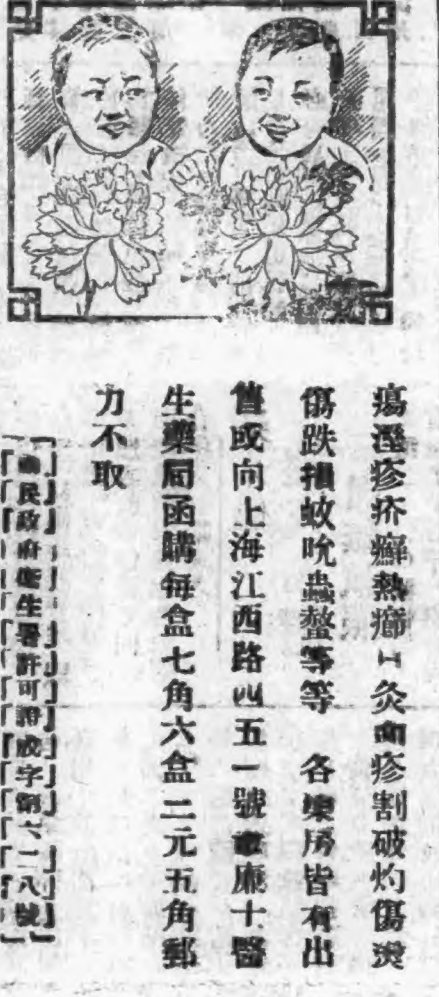 瘍溼疹疥癬熱癤口灸面疹割破灼傷燙
傷跌損蚊吮蟲螫等等　各藥房皆有出
售或向上海江西路四五一號韋廉士醫
生藥局函購每盒七角六盒二元五角郵
力不取
國民政府衛生署許可證成字第六一八號